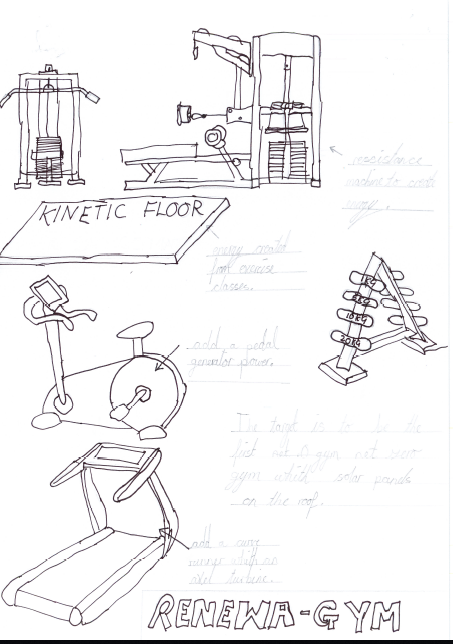 resistance
machine to
energy.
KINETIC FLOOR
energy created
from exercise
classes.
1KG
5KG
10KG
20KG
add a pedal
generator power.
The target is to be the
first net 0 gym net zero
gym with solar panels
on the roof.
add a
with
turbine.
RENEWA-GYM